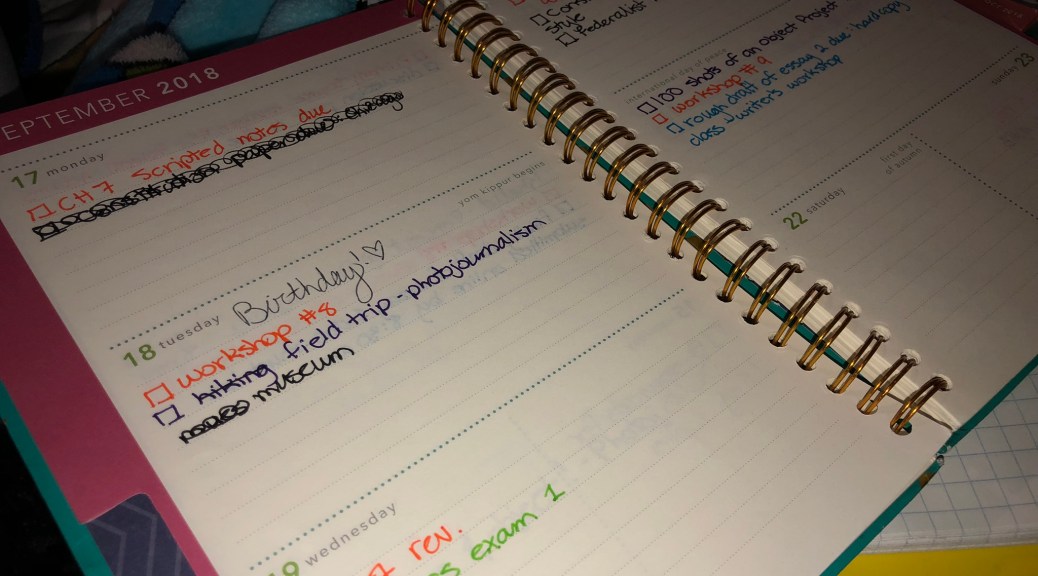 EPTEMBER 2018
17 monday
CH 7 Scripted notes due
yom kippur begins
18 tuesday Birthday!
workshop #8
hiking field trip - photojournalism
museum
19 wednesday
rev.
exam 1
style
Federalist
international day of peace
100 shots of an object Project
workshop #9
rough draft of essay 2 due hardcopy
class writers workshop
22 saturday
first day
of autumn
sunday 23